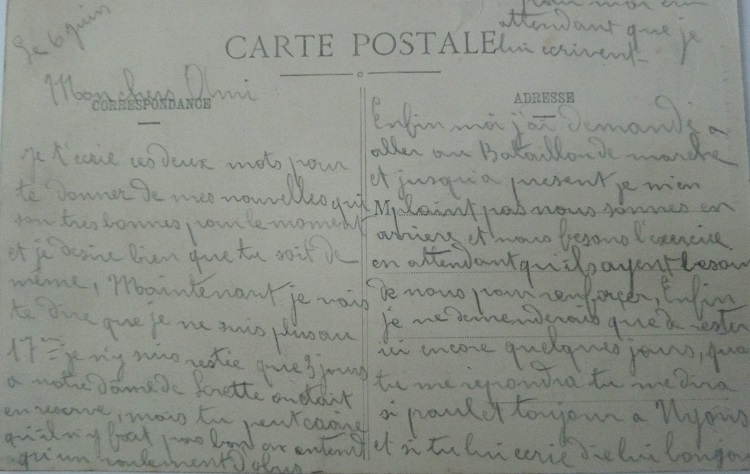 Le 6 juin
CARTE POSTALE
Mon chers Ami
CORRESPONDANCE
je t'ecrie ces deux mots pour
te donner de mes nouvelles qui
son tres bonnes pour le moment
et je desire bien que tu soit de
même, Maintenant je vais
te dire que je ne suis plus au
17eme je n'y suis restée que 3 jours
a notre dame de Lorette on etait
en reserve, mais tu peut croire
qu'il n'y fait pas bon on entend
qu'un roulement d'obus
ADRESSE
Enfin moi j'ai demandé a
aller au Bataillon de marche
et jusqu'a present je m'en
M plaint pas nous sonnes en
arriere et nous fesons l'exercice
en attendant qu'ils ayent besoin
de nous pour renforcer, Enfin
je ne demenderais que de rester
ici encore quelques jours, quan
tu me repondra tu me dira
si paul et toujour a Nyons
et si tu lui ecrie die lui bonjour
pour moi en
attendant que je
lui ecrivent